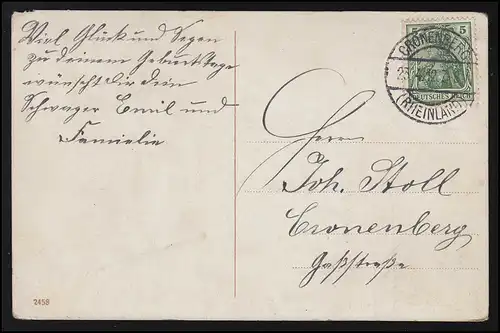 Viel Glück und Segen
zu deinem Geburtstage
wünscht Dir dein
Schwager Emil und
Famielie
5
CRONENBERG
(RHEINLAND)
DEUTSCHES REICH
Herrn
Joh. Stoll
Cronenberg
Gaßstraße
2458